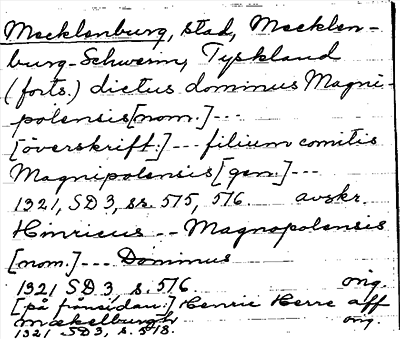 Mecklenburg, stad, Mecklen-
burg-Schwerin, Tyskland
(forts.) dictus dominus Magni-
polensis [nom.] ---
[överskrift:] --- filium comitis
Magnipolensis [gen.] ---
1321, SD 3, s. 515, 516 avskr.
Hinricus -- Magnopolensis
[nom.] --- Dominus
1321 SD 3, s. 516 orig.
[på frånsidan:] Henric Herre aff
mækelburgh
1321 SD 3, s. 518. orig.